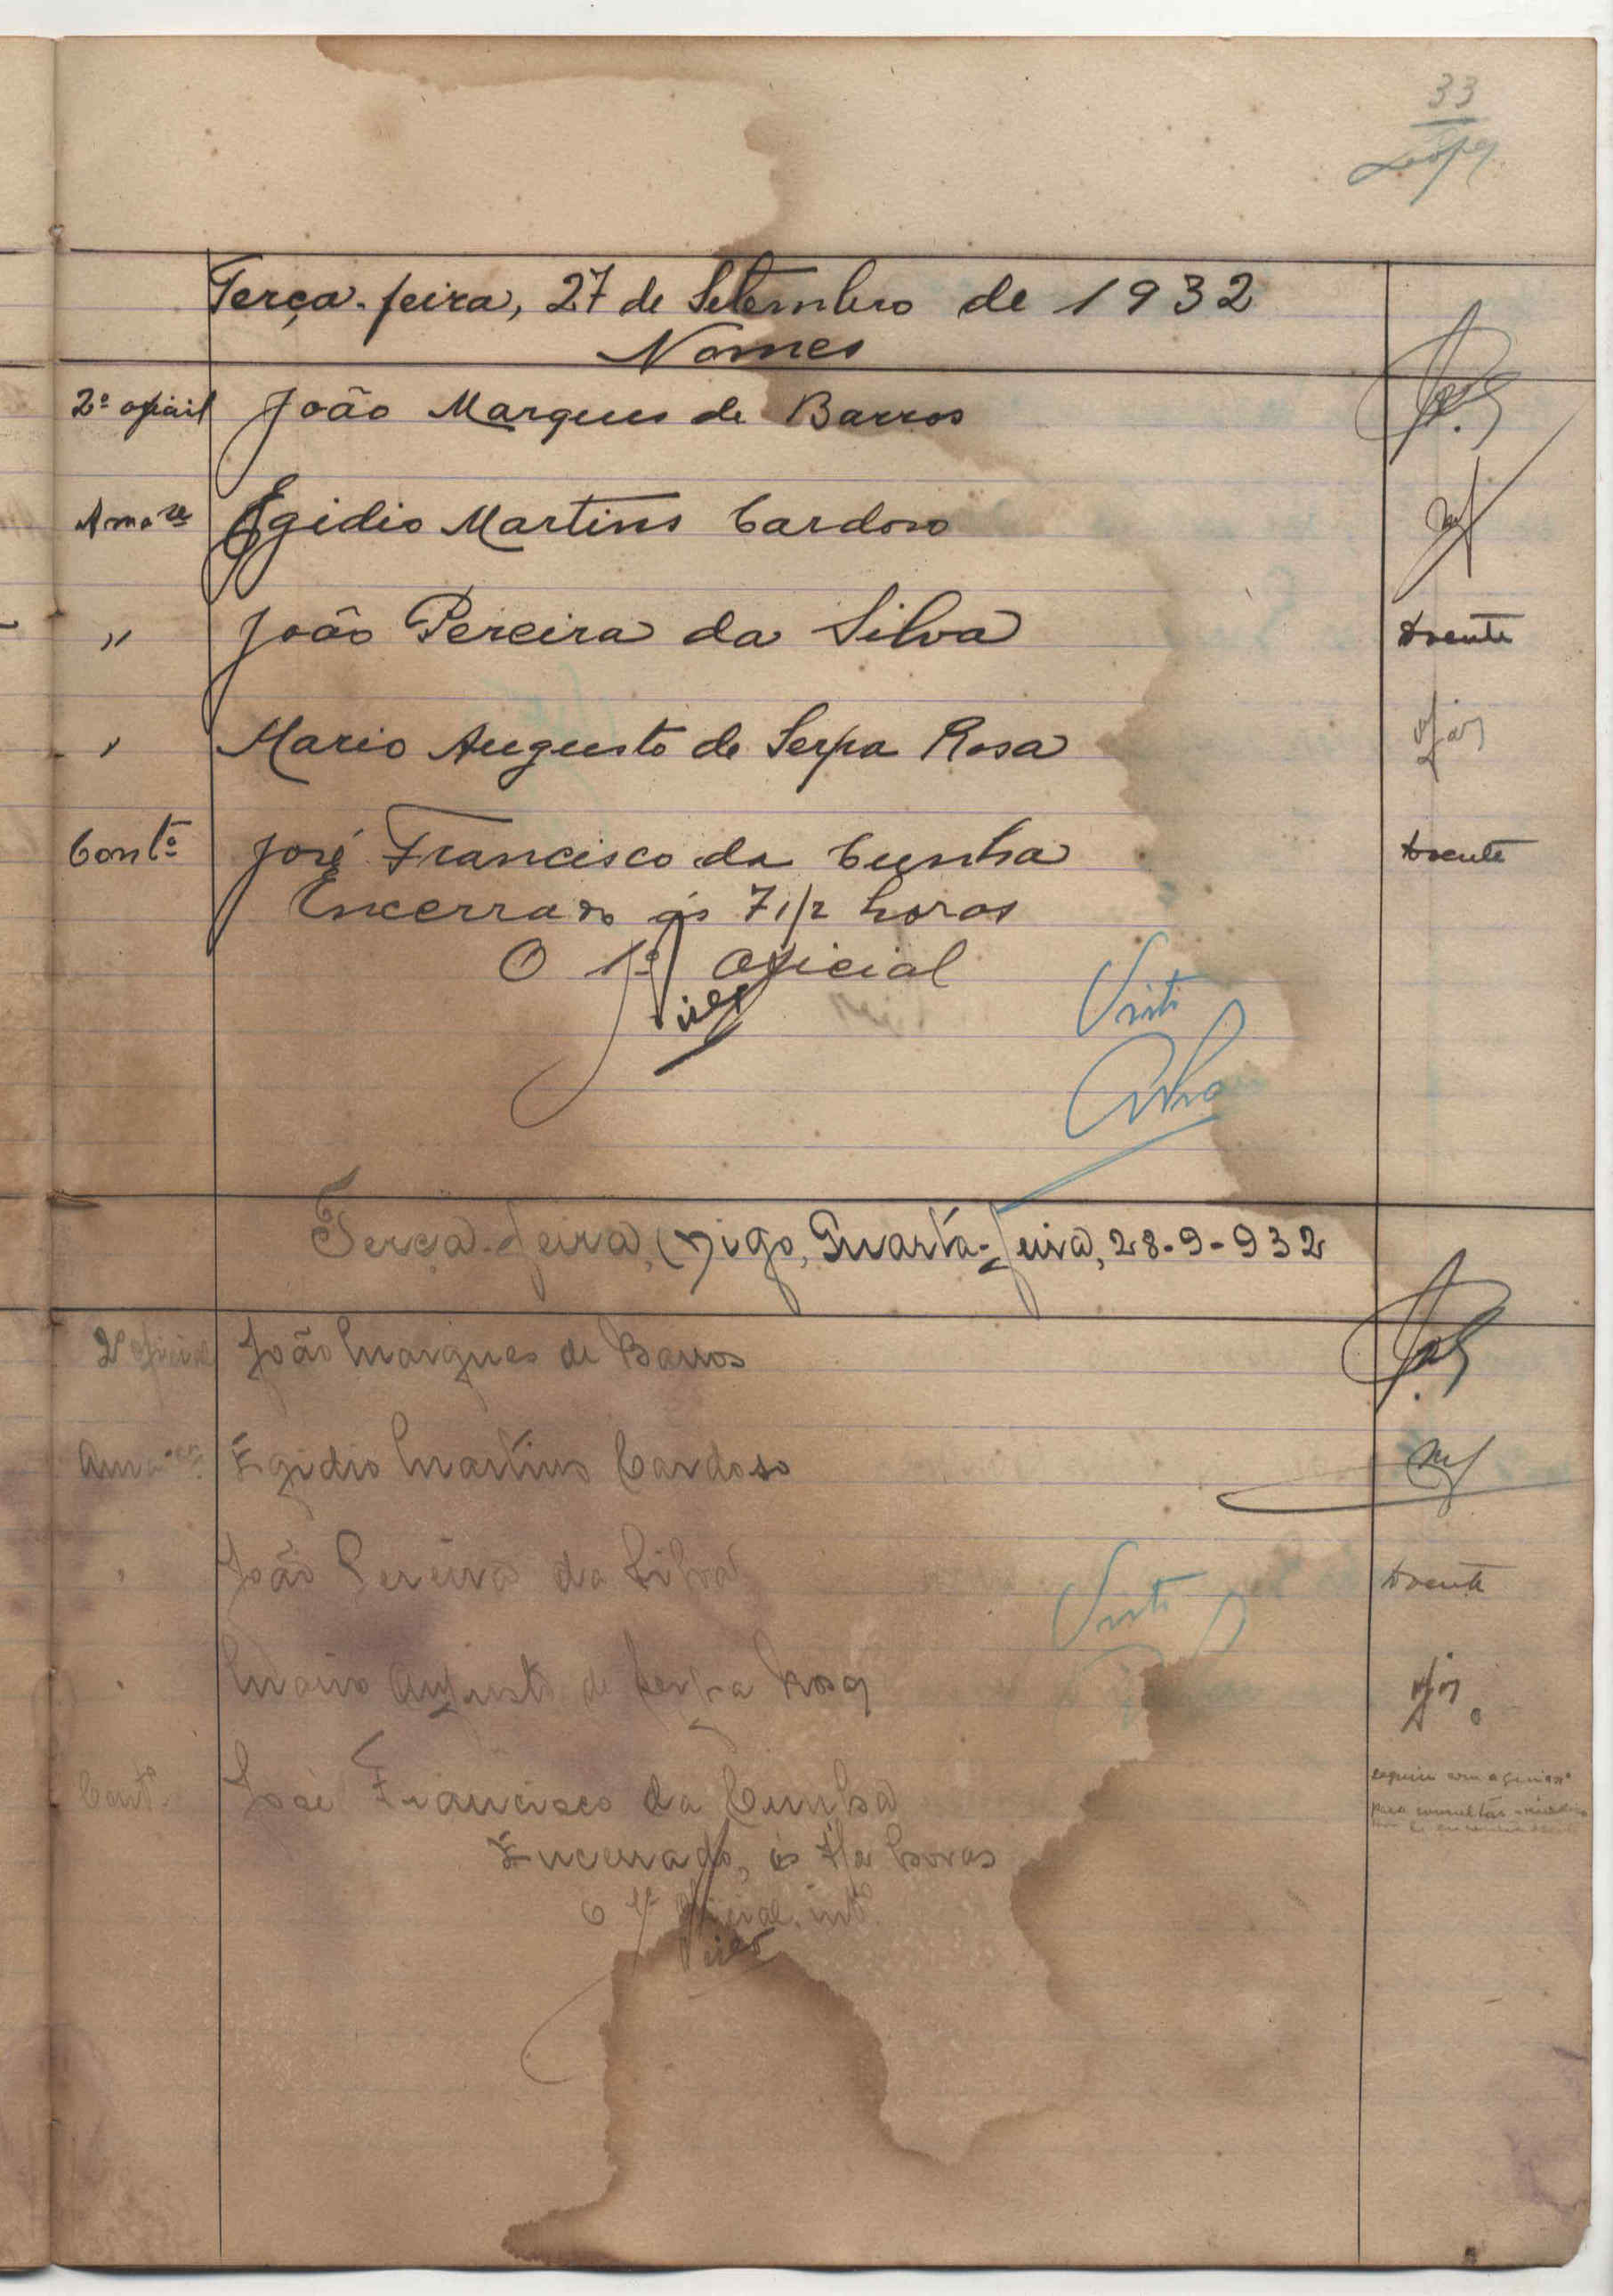 33
Terça-feira, 27 de Setembro de 1932
Nomes
2º oficial João Marques de Barros
Aman.se Egidio Martins Cardoso
" João Pereira da Silva Doente
" Mario Augusto de Serpa Rosa
Cont.º José Francisco da Cunha Doente
Encerrado ás 7 1/2 horas
O 1º oficial
Visto
Terça-feira, (digo, Quarta-feira, 28-9-932
2º oficial João Marques de Barros
Aman.se Egidio Martins Cardoso
" João Pereira da Silva Doente
Visto
" Mario Augusto de Serpa Rosa
Cont.º José Francisco da Cunha
para consultar o médico
Encerrado, ás 7 1/2 horas
O 1º oficial, intº